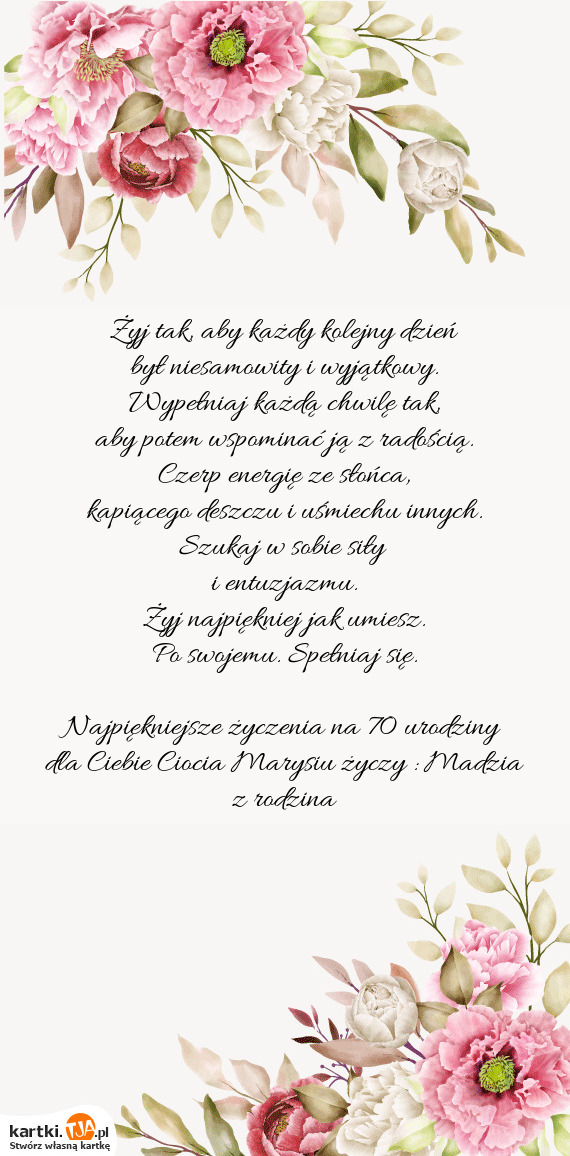 Żyj tak, aby każdy kolejny dzień
był niesamowity i wyjątkowy.
Wypełniaj każdą chwilę tak,
aby potem wspominać ją z radością.
Czerp energię ze słońca,
kapiącego deszczu i uśmiechu innych.
Szukaj w sobie siły
i entuzjazmu.
Żyj najpiękniej jak umiesz.
Po swojemu. Spełniaj się.
Najpiękniejsze życzenia na 70 urodziny
dla Ciebie Ciocia Marysiu życzy : Madzia
z rodzina
kartki.TJA.pl
Stwórz własną kartkę